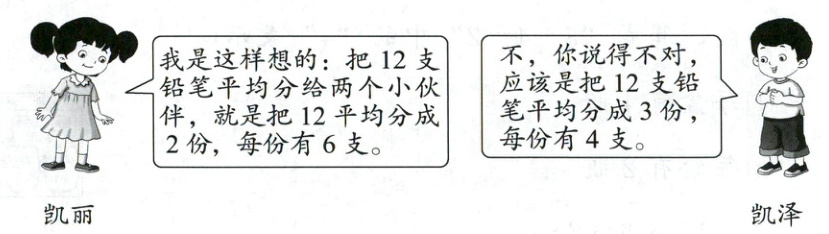 我是这样想的：把 12 支
铅笔平均分给两个小伙
伴，就是把 12 平均分成
2 份，每份有 6 支。
不，你说得不对，
应该是把 12 支铅
笔平均分成 3 份，
每份有 4 支。
凯丽
凯泽